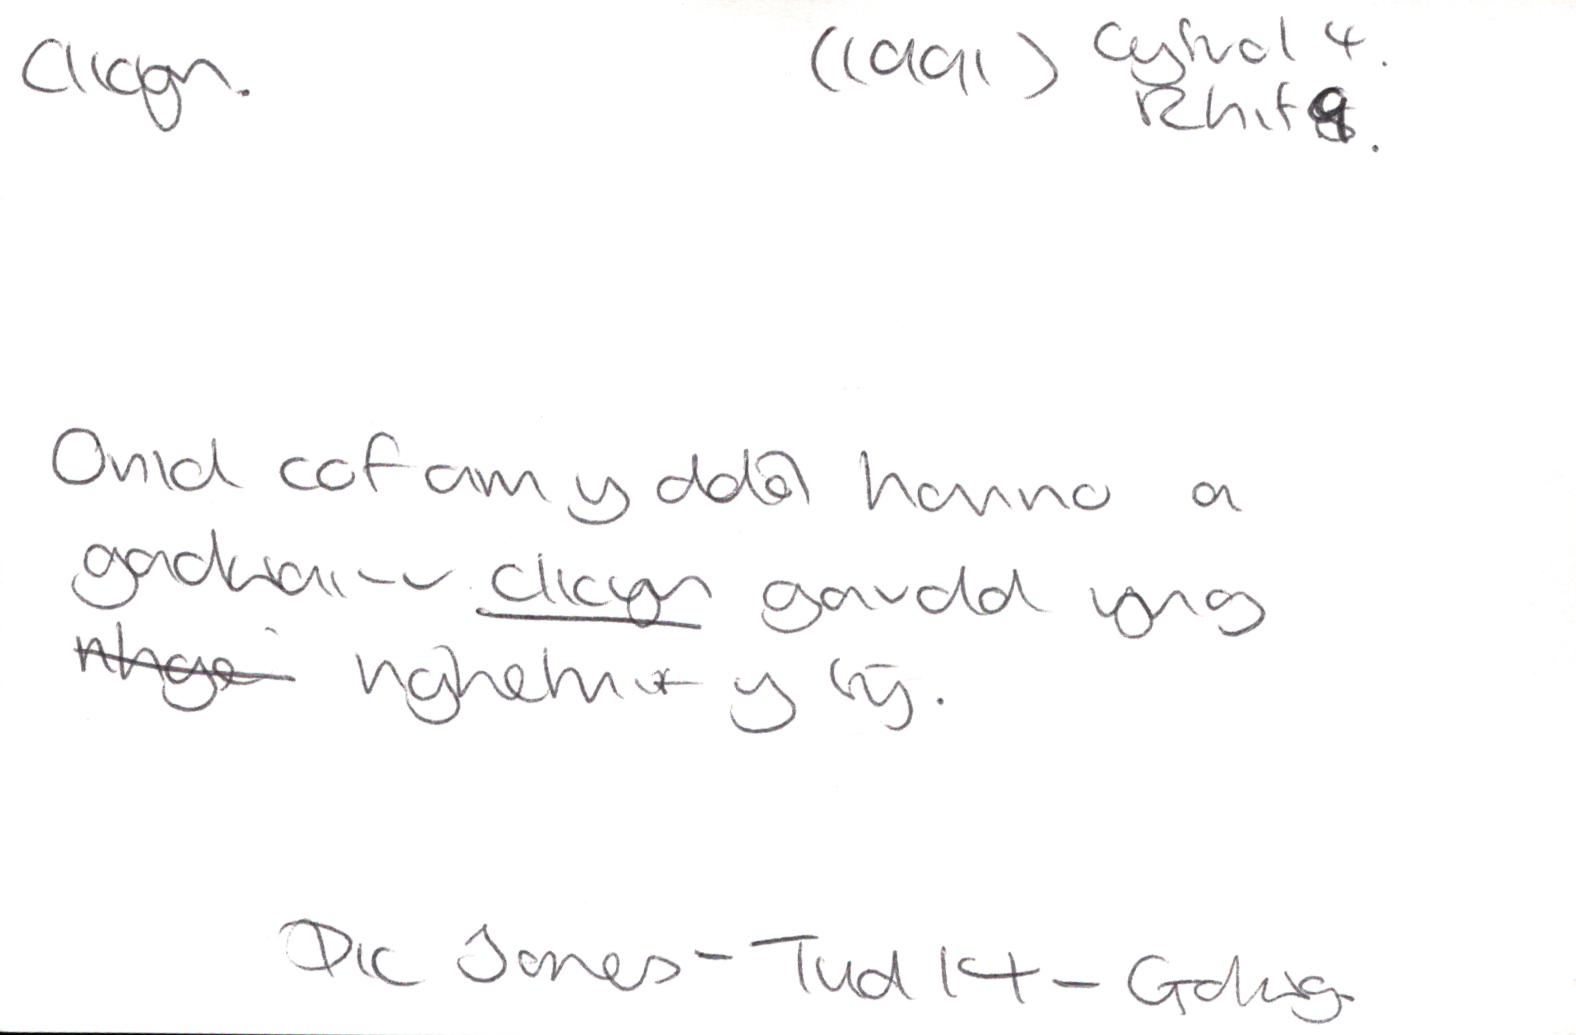 Clicyn.
(1991) Cyfrol 4.
Rhif 9.
Onid cof am y ddôl honno a
gadwai'r clicyn garddd yng
nghefn y tŷ.
Dic Jones - Tud 14 - Golwg